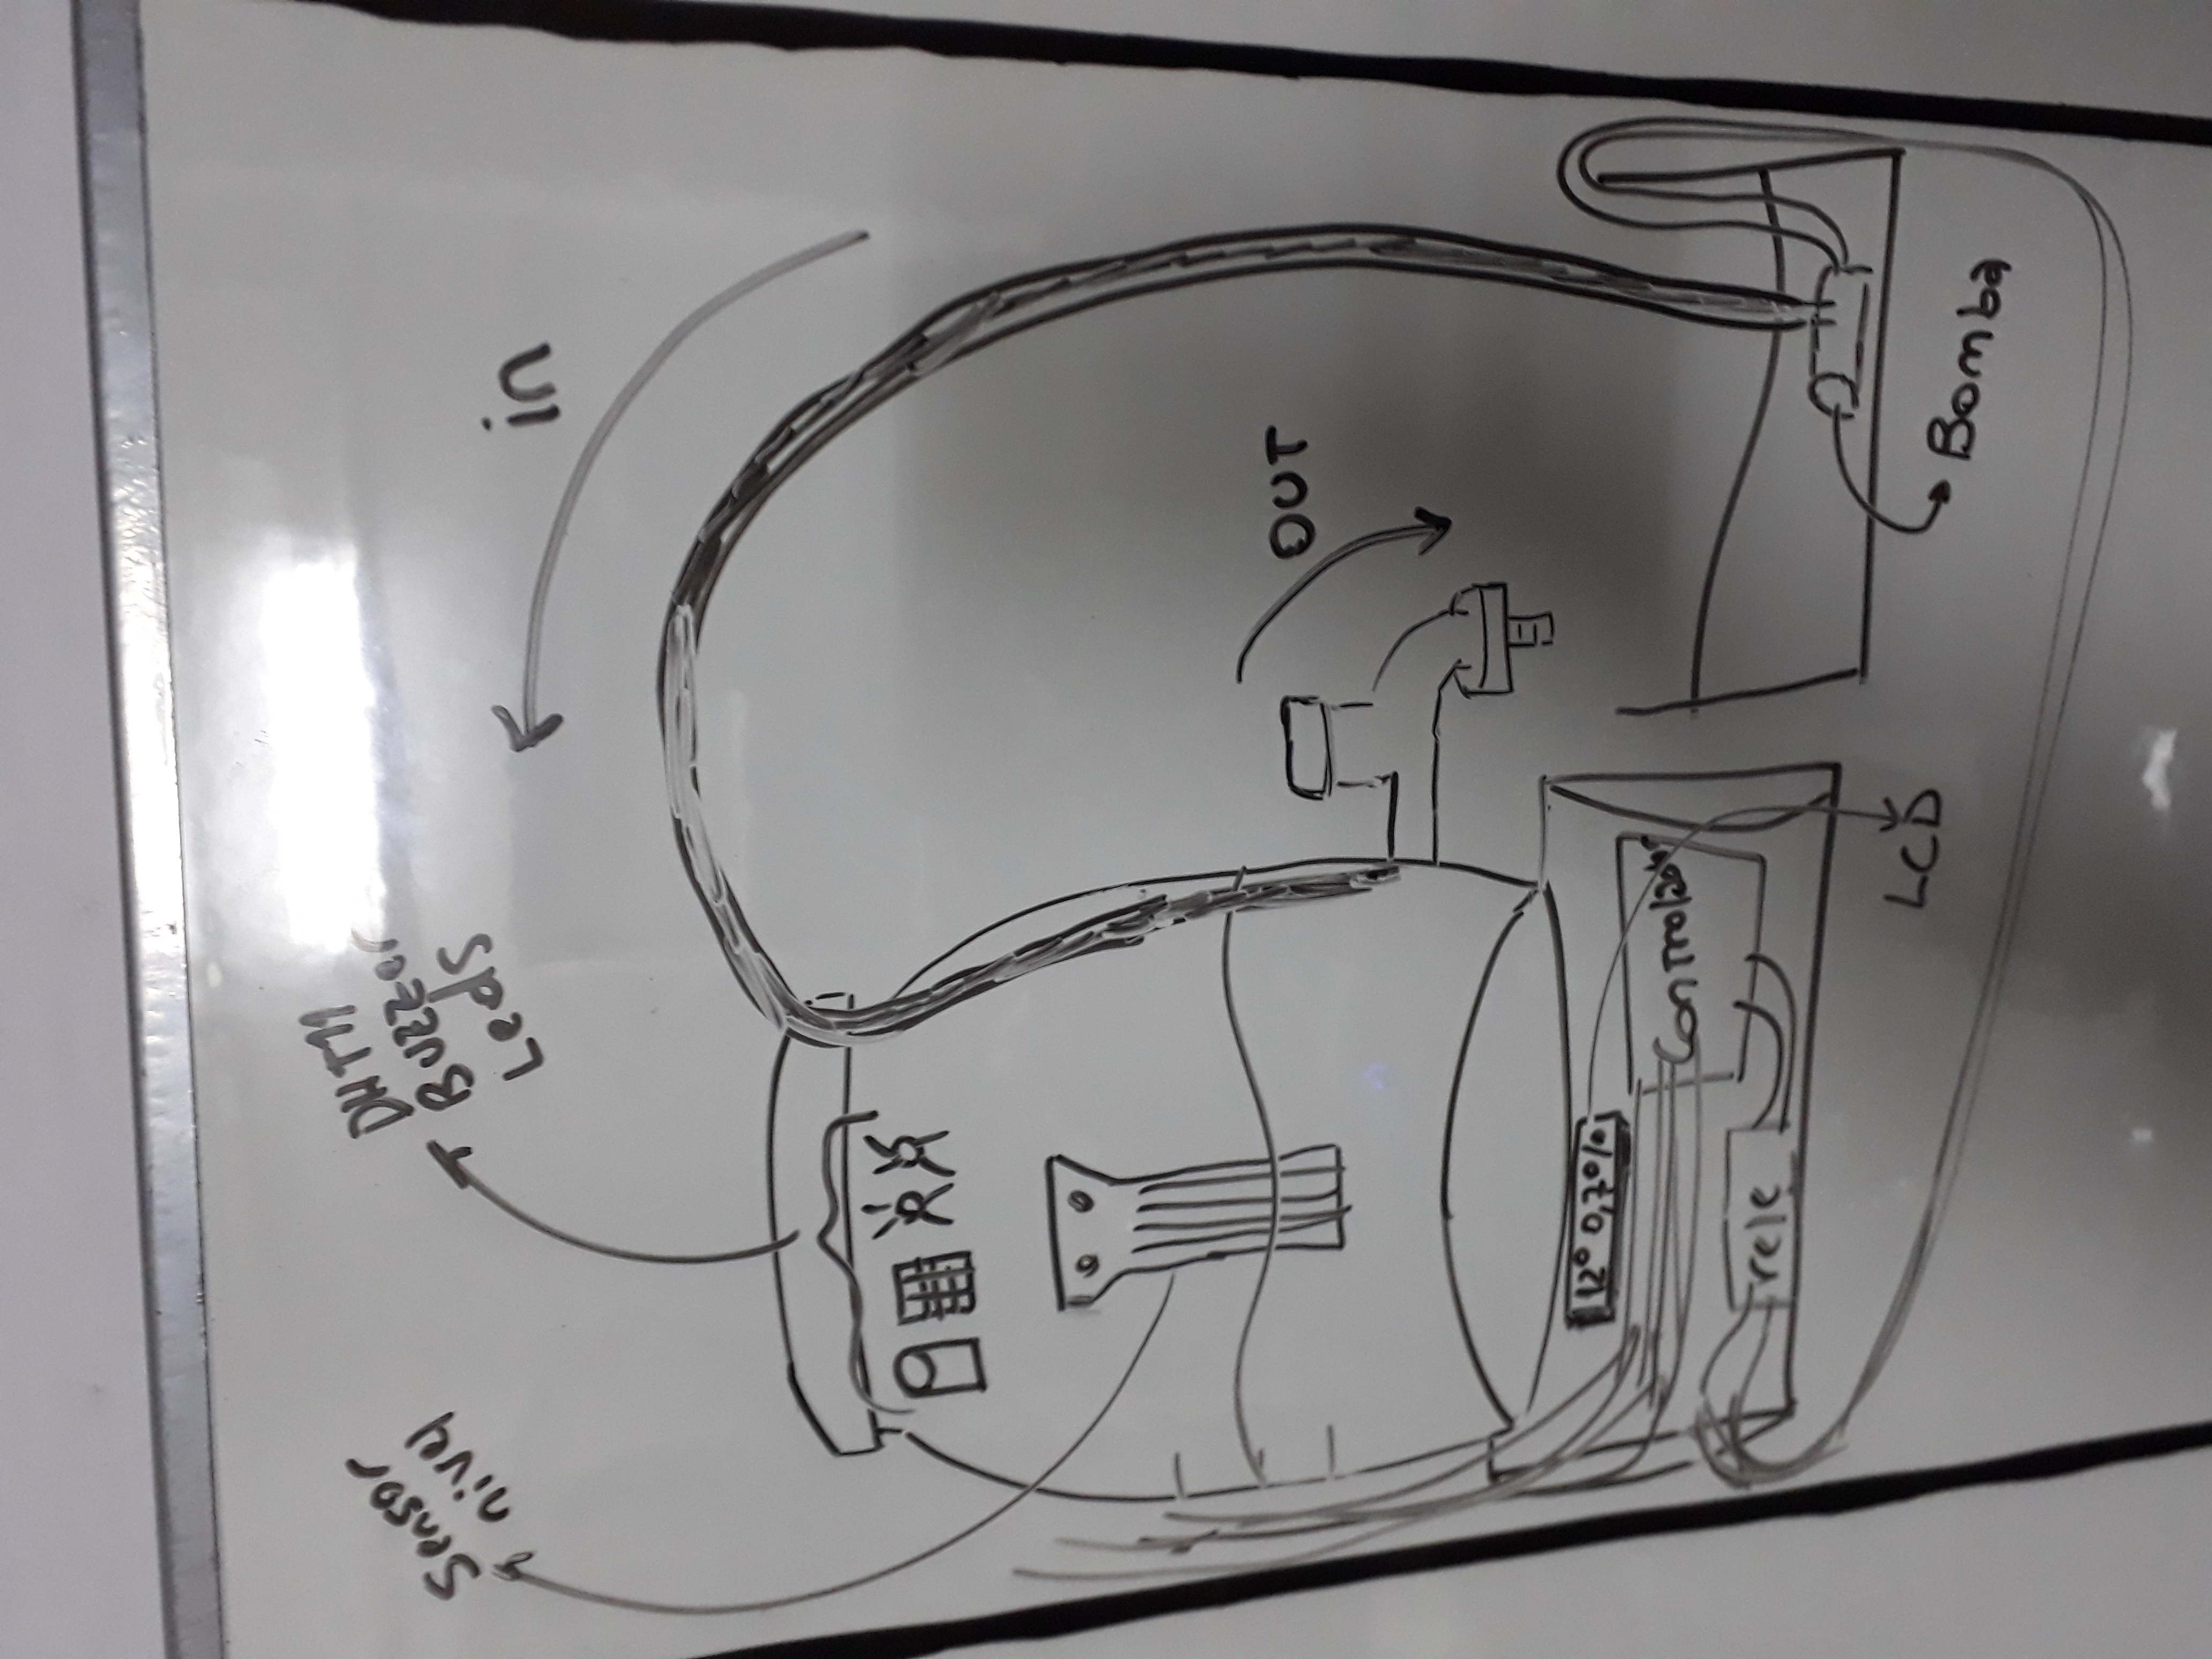 Sensor
nivel
DHT11
Buzzer
Leds
in
OUT
12° 0,7%
Controlador
rele
LCD
Bomba